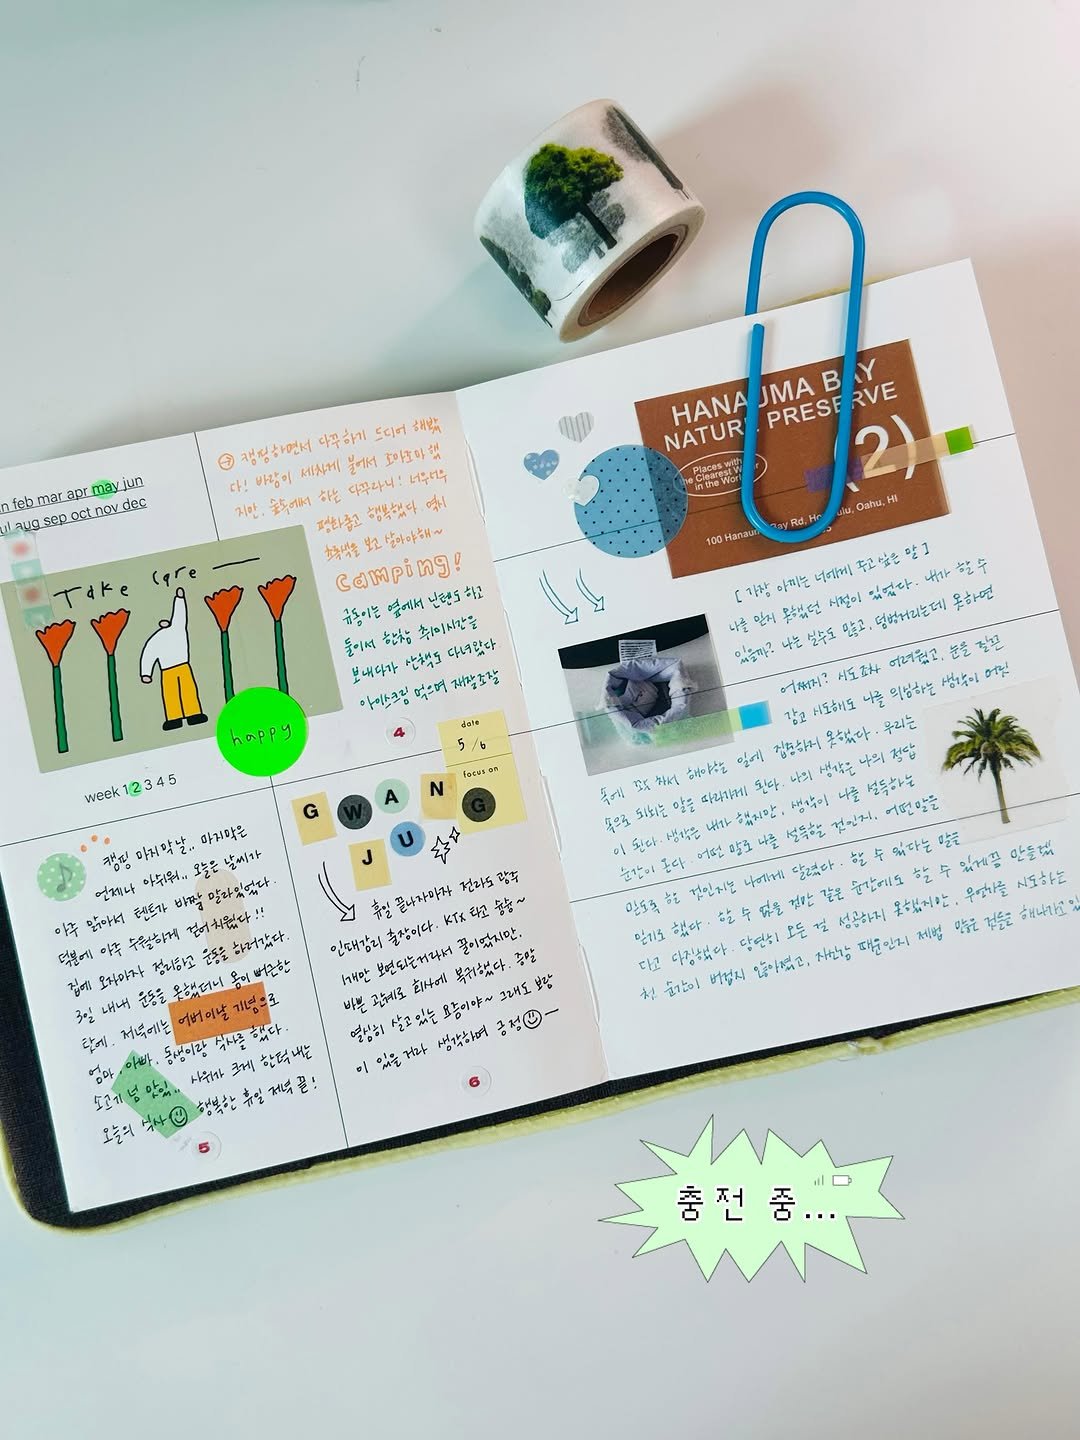 jan feb mar apr may jun
jul aug sep oct nov dec
Take Care
happy
week 1 2 3 4 5
캠핑하면서 다꾸하기 드디어 해봤
다! 바람이 세차게 불어서 조마조마 했
지만, 숲속에서 하는 다꾸라니! 너무너무
평화롭고 행복했다. 역시
초록색을 보고 살아야해~
camping!
금동이는 옆에서 닌텐도 하고
둘이서 한참 취미시간을
보내다가 산책도 다녀왔다
아이스크림 먹으며 재잘조잘
4
캠핑 마지막날.. 마지막은
언제나 아쉬워.. 오늘은 날씨가
아주 맑아서 텐트가 바짝 말라있었다.
덕분에 아주 수월하게 걷어치웠다!!
집에 오자마자 정리하고 운동을 하러갔다.
3일 내내 운동을 못했더니 몸이 뻐근한
탓에. 저녁에는 어버이날 기념으로
엄마, 아빠, 동생이랑 식사를 했다.
소고기 넘 맛있.. 사위가 크게 한턱내는
오늘의 식사 행복한 휴일 저녁 끝!
5
date
5/6
focus on
G W A N G
J U
휴일 끝나자마자 전라도 광주
인태감리 출장이다. KTX 타고 슝슝~
1개만 보면되는거라서 끝이었지만,
바쁜 관계로 회사에 복귀했다. 증말
열심히 살고있는 요즘이야~ 그래도 보람
이 있을거라 생각하며 긍정
6
HANAUMA BAY
NATURE PRESERVE
(2)
Places with
the Clearest Water
in the World
100 Hanauma Bay Rd, Honolulu, Oahu, HI
[가장 아끼는 너에게 주고싶은 말]
나를 믿지 못했던 시절이 있었다. 내가 할 수
있을까? 나는 실수도 많고, 덤벙거리는데 못하면
어쩌지? 시도조차 어려웠고, 눈을 질끈
감고 시도해도 나를 의심하는 생각이 머릿
속에 꽉 차서 해야할 일에 집중하지 못했다. 우리는
속으로 되뇌는 말을 따라가게 된다. 나의 생각은 나의 정답
이 된다. 생각은 내가 했지만, 생각이 나를 설득하는
순간이 온다. 어떤 말로 나를 설득할 것인지, 어떤 말을
믿도록 할 것인지는 나에게 달렸다. 할 수 있다는 말을
믿기로 했다. 할 수 없을 것만 같은 순간에도 할 수 있게끔 만들겠
다고 다짐했다. 당연히 모든 걸 성공하지 못했지만, 무언가를 시도하는
첫 순간이 버겁지 않아졌고, 자신감 때문인지 제법 많은 것들을 해나가고 있
충전 중...